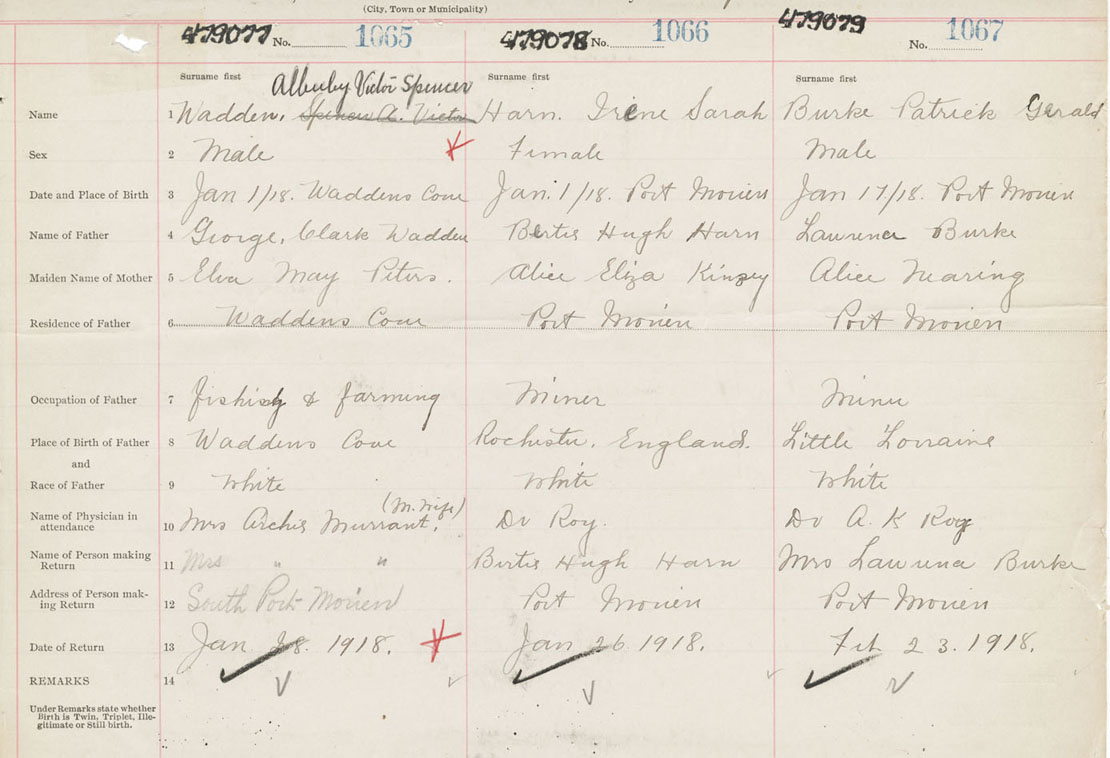 (City, Town or Municipality)
479077 No. 1065 479078 No. 1066 479079 No. 1067
Surname first Surname first Surname first
Victor Spencer
Name 1 Wadden, Spencer A. Victor Harn. Irene Sarah Burke Patrick Gerald
Sex 2 Male Female Male
Date and Place of Birth 3 Jan 1/18. Waddens Cove Jan. 1/18. Port Morien Jan 17/18. Port Morien
Name of Father 4 George, Clark Wadden Bertie Hugh Harn Lawrence Burke
Maiden Name of Mother 5 Elva May Peters. Alice Eliza Kinzey Alice Nearing
Residence of Father 6 Waddens Cove Port Morien Port Morien
Occupation of Father 7 Fishing & farming Miner Miner
Place of Birth of Father 8 Waddens Cove Rochester, England. Little Lorraine
and
Race of Father 9 White White White
(M. Wife)
Name of Physician in
attendance 10 Mrs Archie Murrant. Dr Roy. Dr A. K Roy
Name of Person making
Return 11 Mrs " " Bertie Hugh Harn Mrs Lawrence Burke
Address of Person mak-
ing Return 12 South Port Morien Port Morien Port Morien
Date of Return 13 Jan 28. 1918. Jan 26 1918. Feb 23. 1918.
REMARKS 14
Under Remarks state whether
Birth is Twin, Triplet, Ille-
gitimate or Still birth.